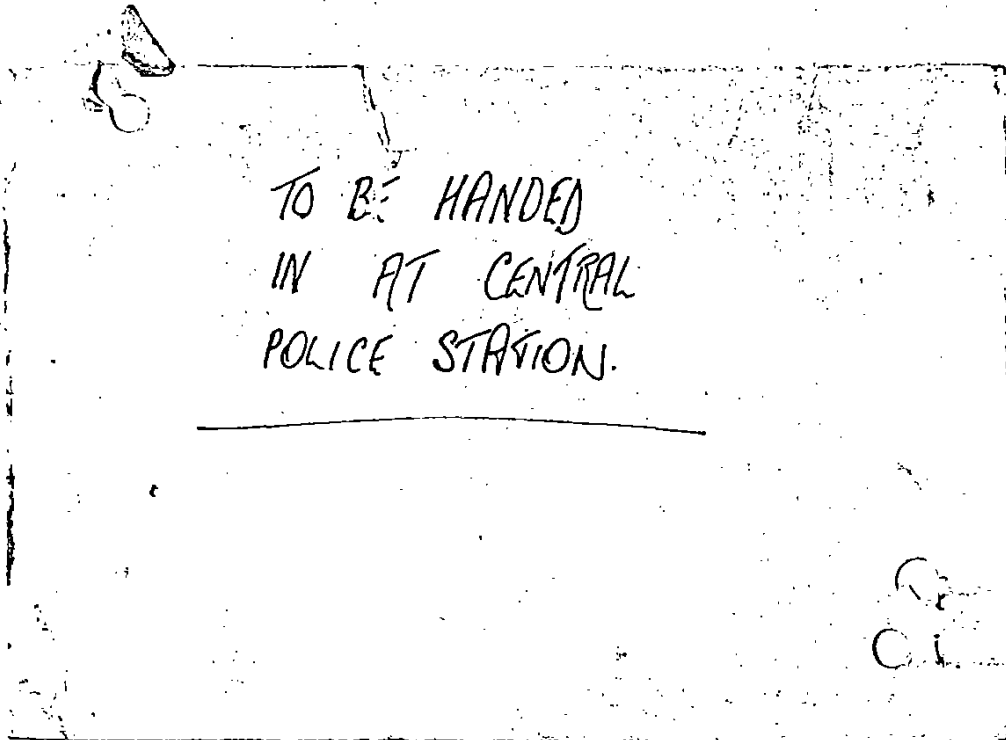 TO BE HANDED
IN AT CENTRAL
POLICE STATION.